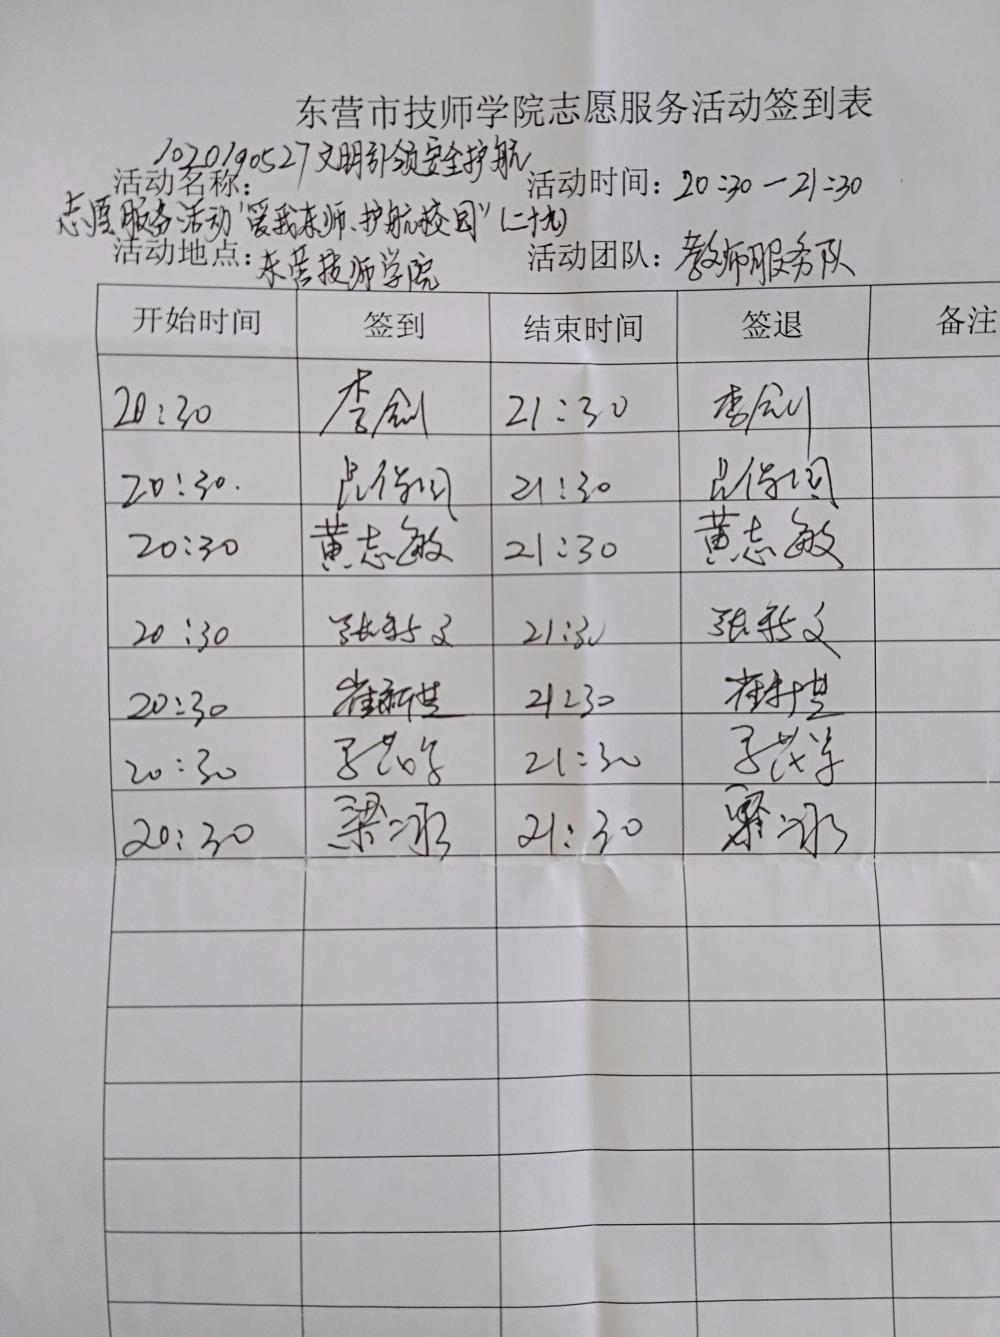 东营市技师学院志愿服务活动签到表
1020190527文明引领安全护航
活动名称: 活动时间: 20:30—21:30
志愿服务活动"爱我东师、护航校园"(二十九)
活动地点: 东营技师学院 活动团队: 教师服务队
开始时间 签到 结束时间 签退 备注
20:30 李剑 21:30 李剑
20:30. 21:30
20:30 黄志敏 21:30 黄志敏
20:30 张新文 21:30 张新文
20:30 21:30
20:30 21:30
20:30 梁冰 21:30 梁冰